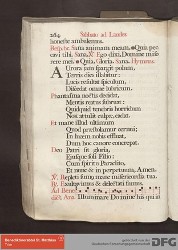 284 Sabbato ad Laudes
honeste ambulemus.
Resp. br. Sana animam meam, * Quia pec
cavi tibi. Sana. ℣ Ego dixi, Domine mise
rere mei. * Quia. Gloria. Sana. Hymnus.
Aurora jam spargit polum,
Terris dies illabitur:
Lucis resultat spiculum,
Discedat omne lubricum.
Phantasma noctis decidat,
Mentis reatus subruat:
Quidquid tenebris horridum
Nox attulit culpæ, cadat.
Et mane illud ultimum
Quod præstolamur cernui:
In lucem nobis effluat,
Dum hoc canore concrepat.
Deo Patri sit gloria,
Ejusque soli Filio:
Cum Spiritu Paraclito,
Et nunc et in perpetuum. Amen.
℣ Repleti sumus mane misericordia tua.
℟ Exultavimus & delectati sumus.
Ad Ben
dict. Ana. Illuminare Domine his qui in
Benediktinerabtei St. Matthias
Trier
DFG